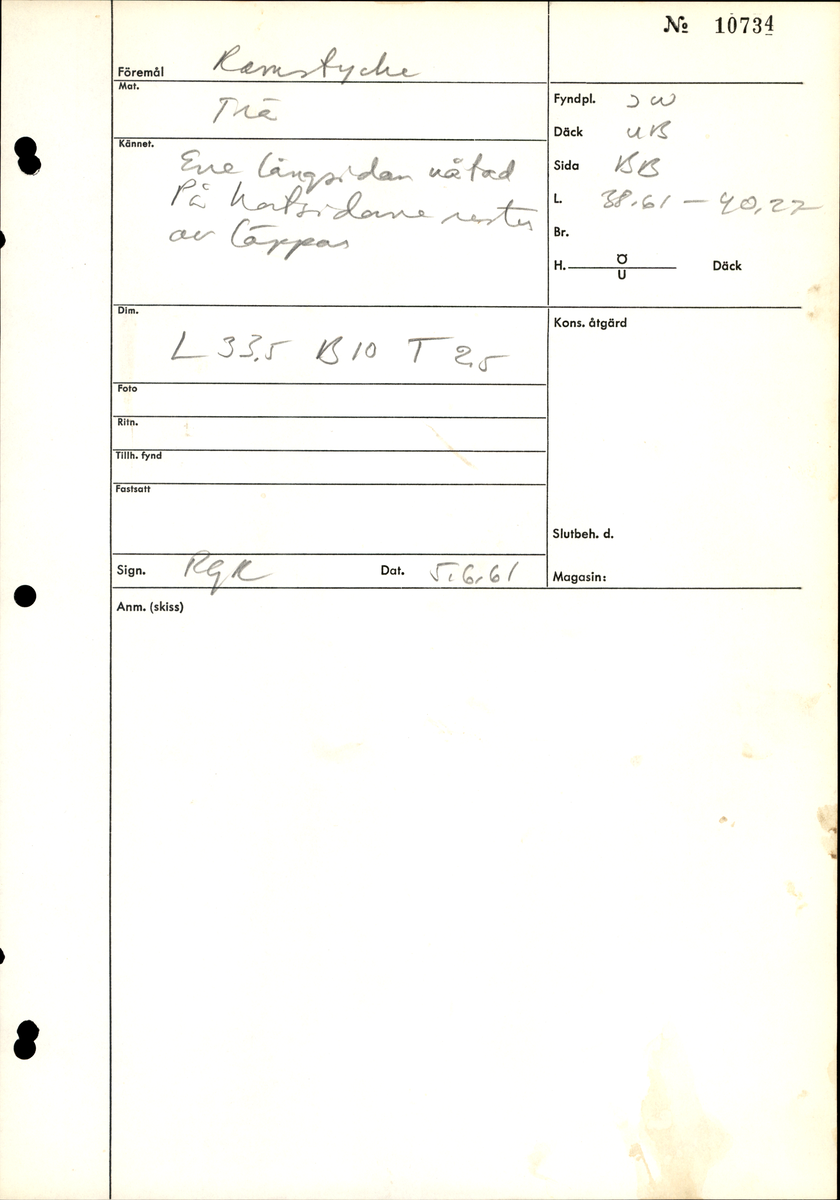 № 10734
Föremål Ramstycke
Mat.
Trä
Kännet.
Ene långsidan nåtad
På kortsidorna rester
av läppar
Fyndpl. JW
Däck UB
Sida BB
L. 38.61 - 40.27
Br.
H. Ö
U
Däck
Dim.
L 33,5 B 10 T 2,5
Kons. åtgärd
Foto
Ritn.
Tillh. fynd
Fastsatt
Slutbeh. d.
Sign. RGK Dat. 5.6.61
Magasin:
Anm. (skiss)